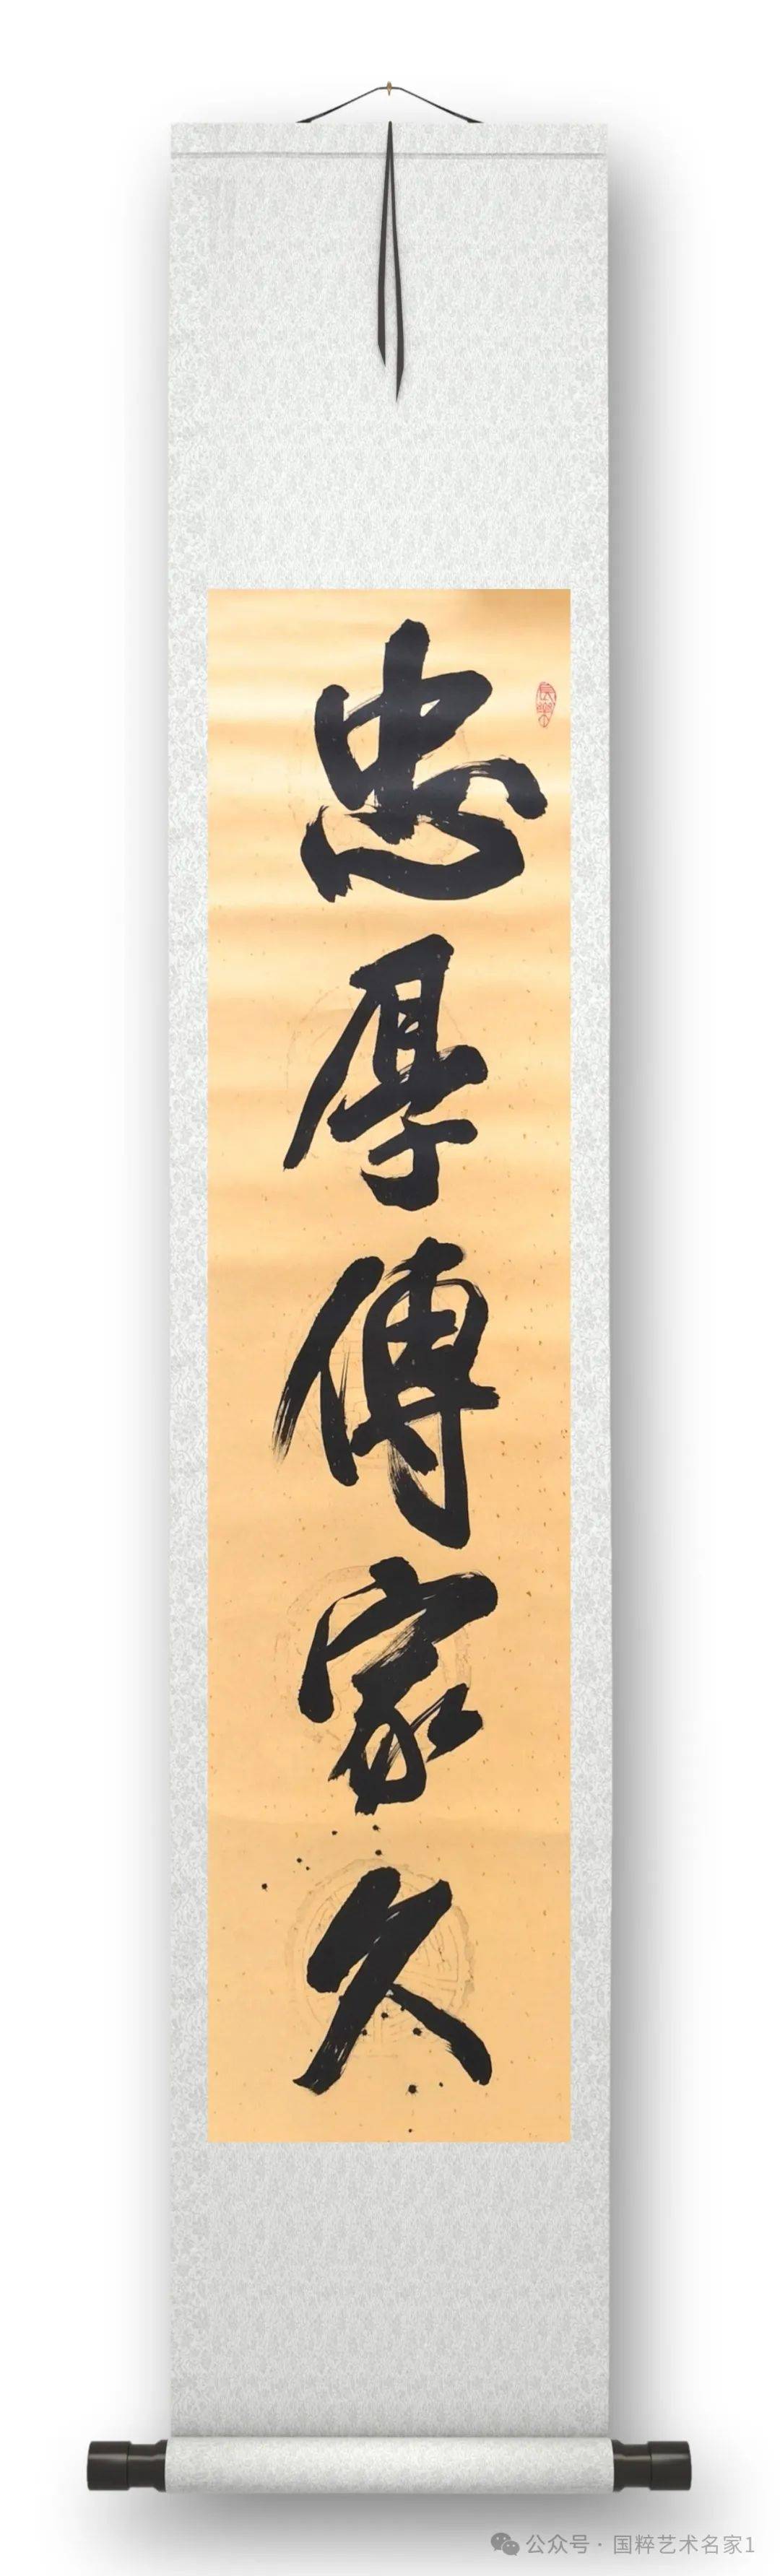 忠厚傳家久
長樂
公众号 · 国粹艺术名家1